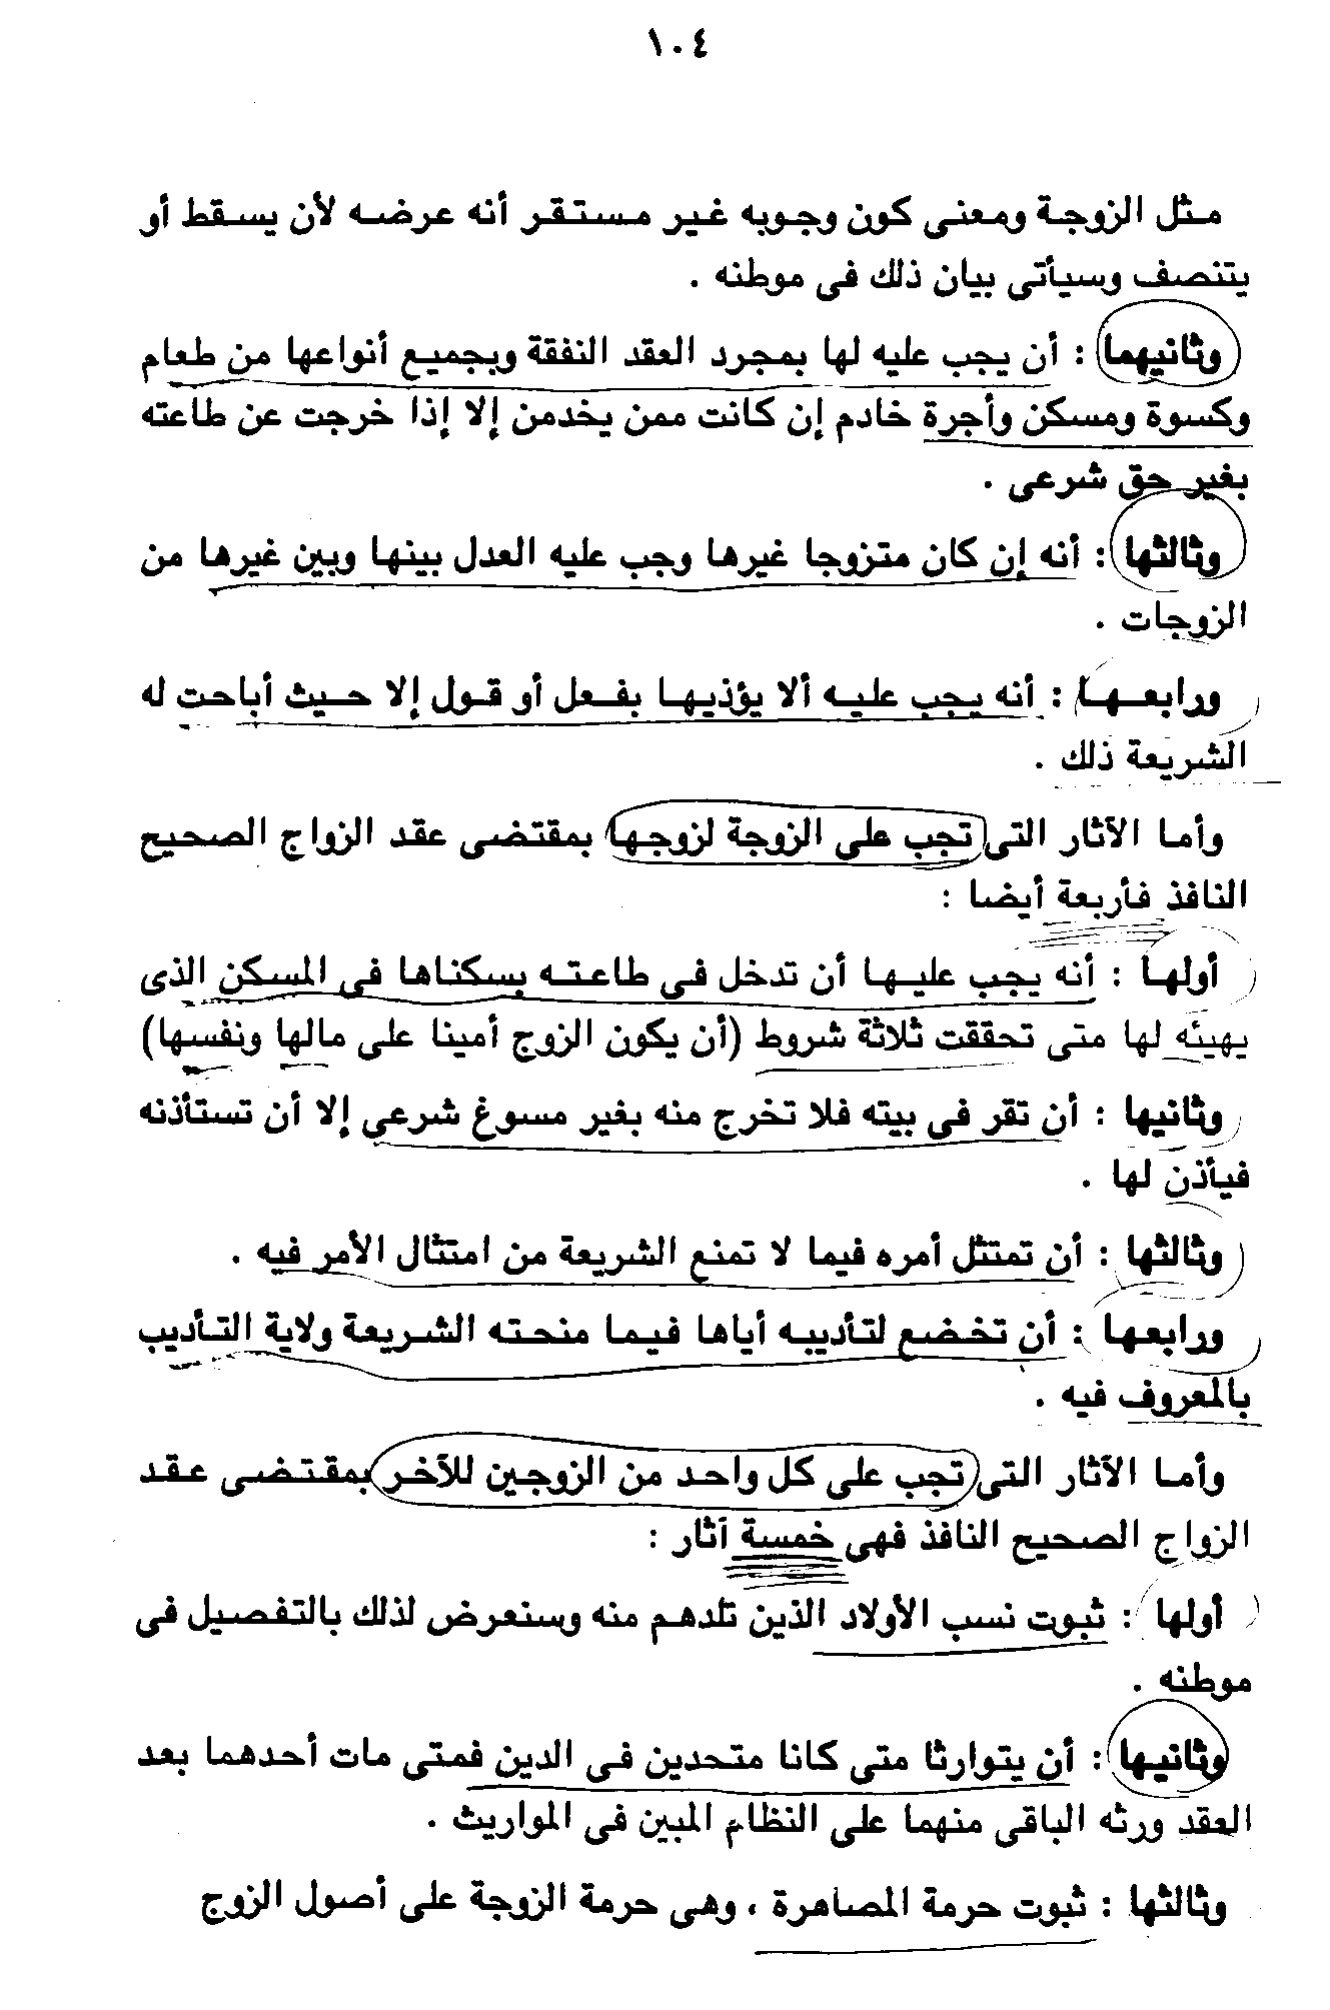 ١٠٤
مثل الزوجة ومعنى كون وجوبه غير مستقر أنه عرضه لأن يسقط أو
يتنصف وسيأتى بيان ذلك فى موطنه .
وثانيهما : أن يجب عليه لها بمجرد العقد النفقة وبجميع أنواعها من طعام
وكسوة ومسكن وأجرة خادم إن كانت ممن يخدمن إلا إذا خرجت عن طاعته
بغير حق شرعى .
وثالثها : أنه إن كان متزوجا غيرها وجب عليه العدل بينها وبين غيرها من
الزوجات .
ورابعها : أنه يجب عليه ألا يؤذيها بفعل أو قول إلا حيث أباحت له
الشريعة ذلك .
وأما الآثار التى تجب على الزوجة لزوجها بمقتضى عقد الزواج الصحيح
النافذ فأربعة أيضا :
أولها : أنه يجب عليها أن تدخل فى طاعته بسكناها فى المسكن الذى
يهيئه لها متى تحققت ثلاثة شروط (أن يكون الزوج أمينا على مالها ونفسها)
وثانيها : أن تقر فى بيته فلا تخرج منه بغير مسوغ شرعى إلا أن تستأذنه
فيأذن لها .
وثالثها : أن تمتثل أمره فيما لا تمنع الشريعة من امتثال الأمر فيه .
ورابعها : أن تخضع لتأديبه أياها فيما منحته الشريعة ولاية التأديب
بالمعروف فيه .
وأما الآثار التى تجب على كل واحد من الزوجين للآخر بمقتضى عقد
الزواج الصحيح النافذ فهى خمسة آثار :
أولها : ثبوت نسب الأولاد الذين تلدهم منه وسنعرض لذلك بالتفصيل فى
موطنه .
وثانيها : أن يتوارثا متى كانا متحدين فى الدين فمتى مات أحدهما بعد
العقد ورثه الباقى منهما على النظام المبين فى المواريث .
وثالثها : ثبوت حرمة المصاهرة ، وهى حرمة الزوجة على أصول الزوج